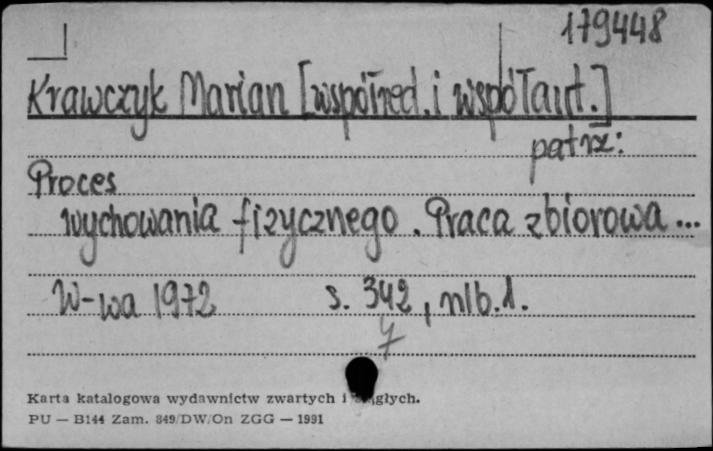 179448
Krawczyk Marian [współred. i współaut.]
patrz:
Proces
wychowania fizycznego. Praca zbiorowa...
W-wa 1972 s. 342, nlb. 1.
4
Karta katalogowa wydawnictw zwartych i
PU — B144 Zam. 849/DW/On ZGG — 1991